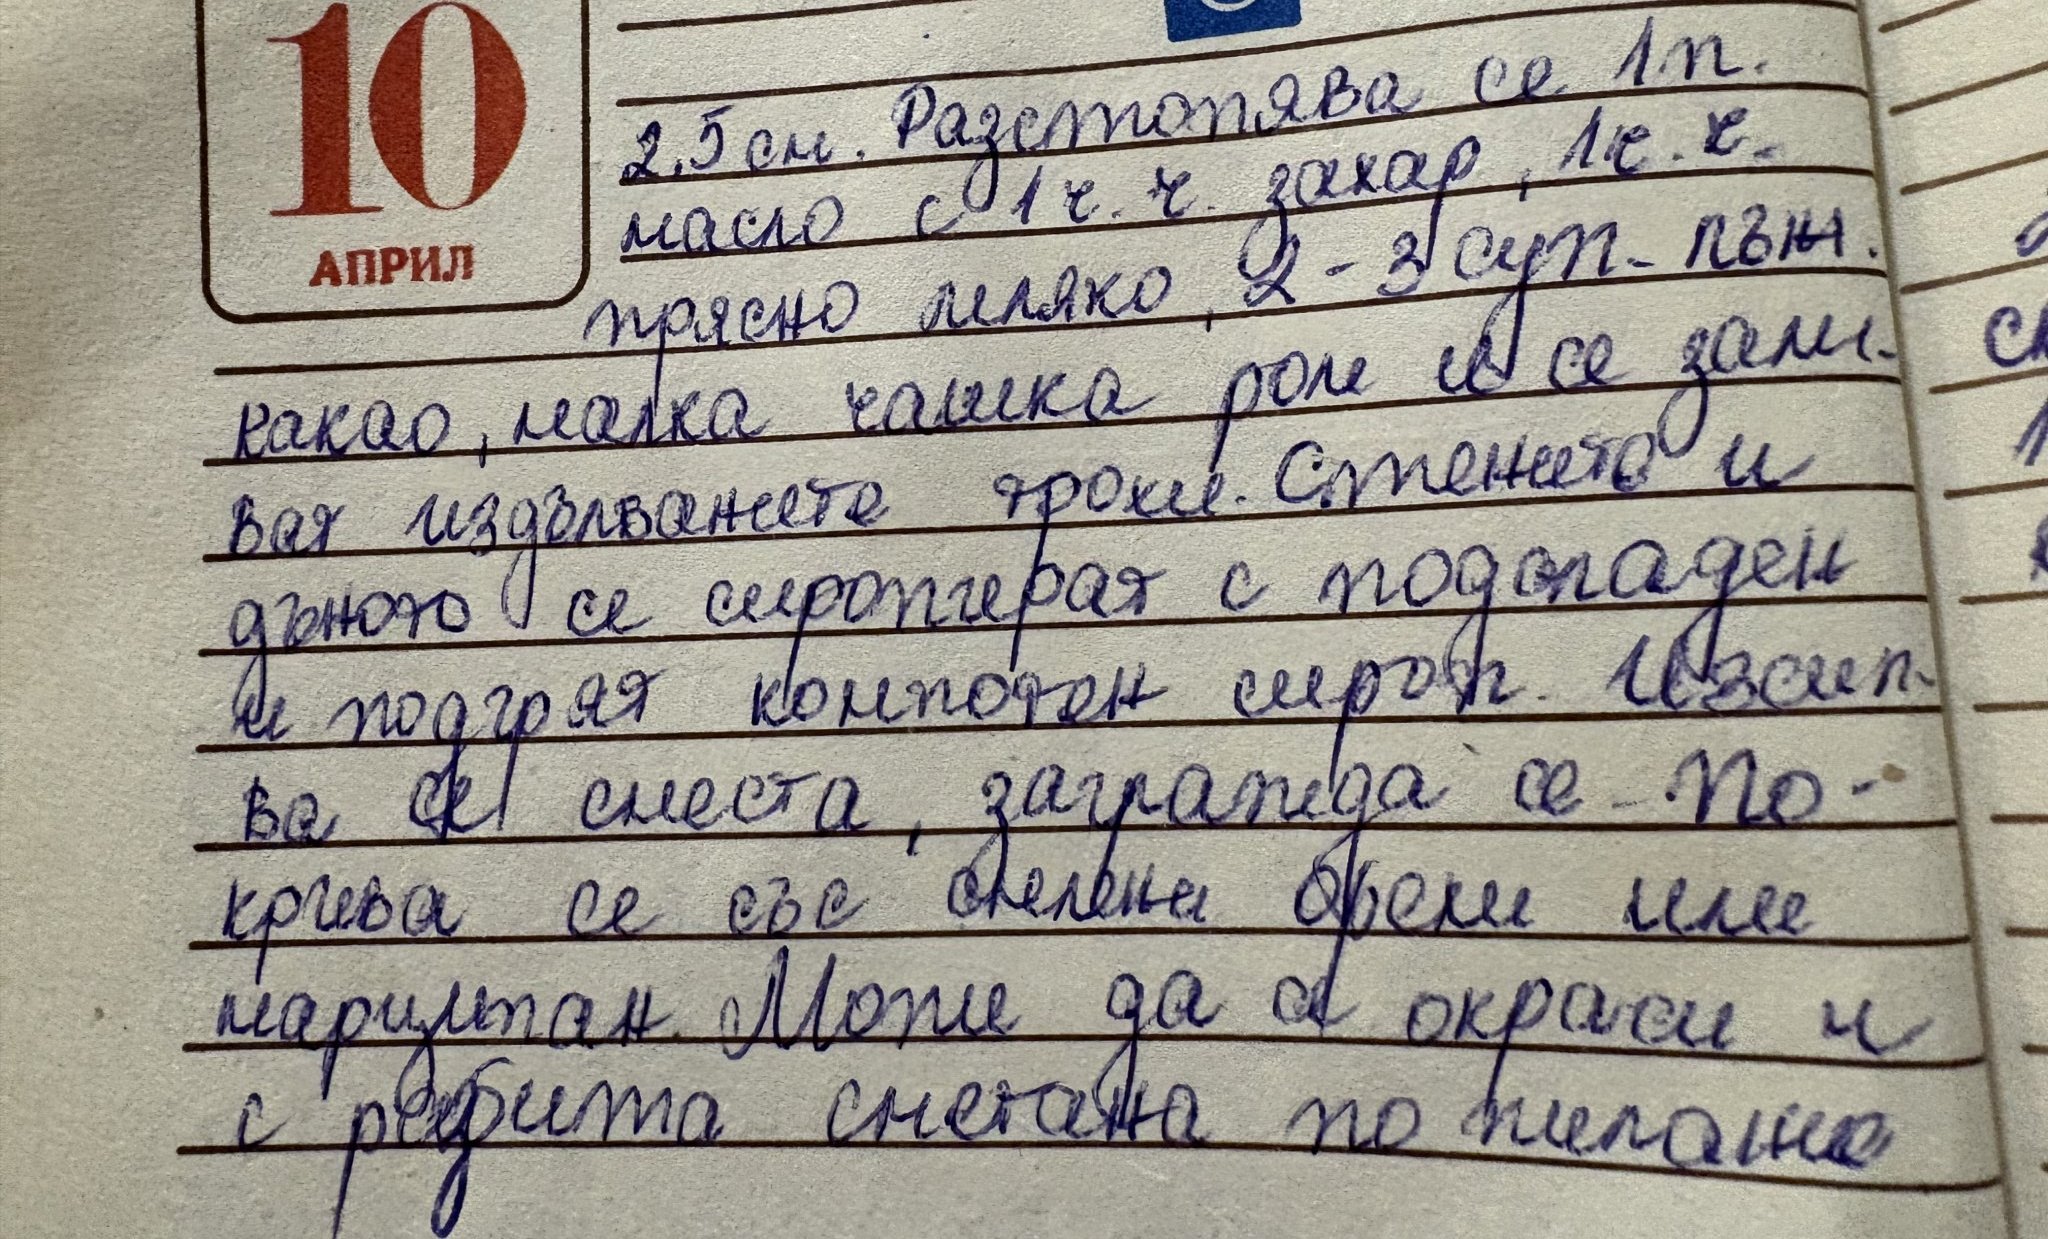 10
АПРИЛ
2.5 см. Разстопява се 1 п.
масло с 1 ч. ч. захар, 1 ч. ч.
прясно мляко, 2-3 суп. лъж.
какао, малка чашка ром и се зали-
ват издълбаните трохи. Стените и
дъното се сиропират с подсладен
и подгрят компотен сироп. Изсип-
ва се сместа, заглажда се. По-
крива се със смлени орехи или
марципан. Може да се окраси и
с разбита сметана по желание